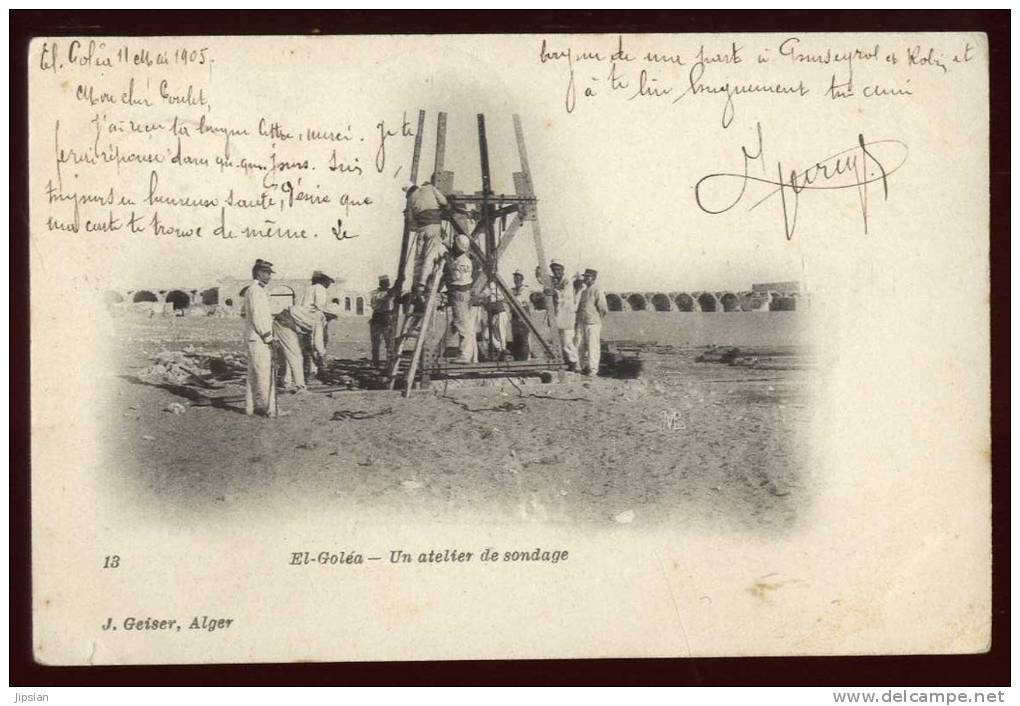 El. Goléa 11 Mai 1905.
Mon cher Goulet,
J'ai reçu ta longue lettre, merci. Je te
ferai réponse dans qu-ques jours. Suis
toujours en heureuse santé, désire que
ma carte te trouve de même. Le
de ma part à et Robin et
à te lire longuement ton ami
13
El-Goléa — Un atelier de sondage
J. Geiser, Alger
Jipsian
www.delcampe.net